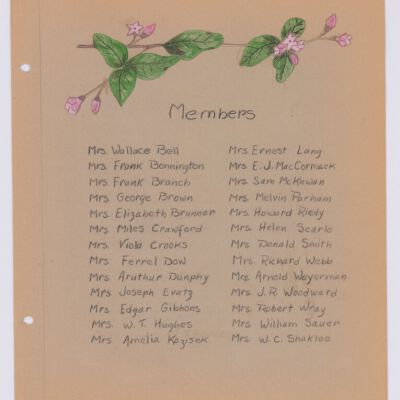 Members
Mrs. Wallace Bell
Mrs. Frank Bennington
Mrs. Frank Branch
Mrs. George Brown
Mrs. Elizabeth Brunner
Mrs Miles Crawford
Mrs. Viola Crooks
Mrs Ferrel Dow
Mrs. Aruthur Dunphy
Mrs Joseph Evatz
Mrs Edgar Gibbons
Mrs. W. T. Hughes
Mrs Amelia Kozisek
Mrs Ernest Lang
Mrs. E. J. MacCormack
Mrs. Sam McKewan
Mrs. Melvin Parham
Mrs. Howard Riedy
Mrs. Helen Searle
Mrs Donald Smith
Mrs. Richard Webb
Mrs Arnold Weyerman
Mrs. J. R. Woodward
Mrs. Robert Wray
Mrs. William Sauer
Mrs. W. C. Shaklee